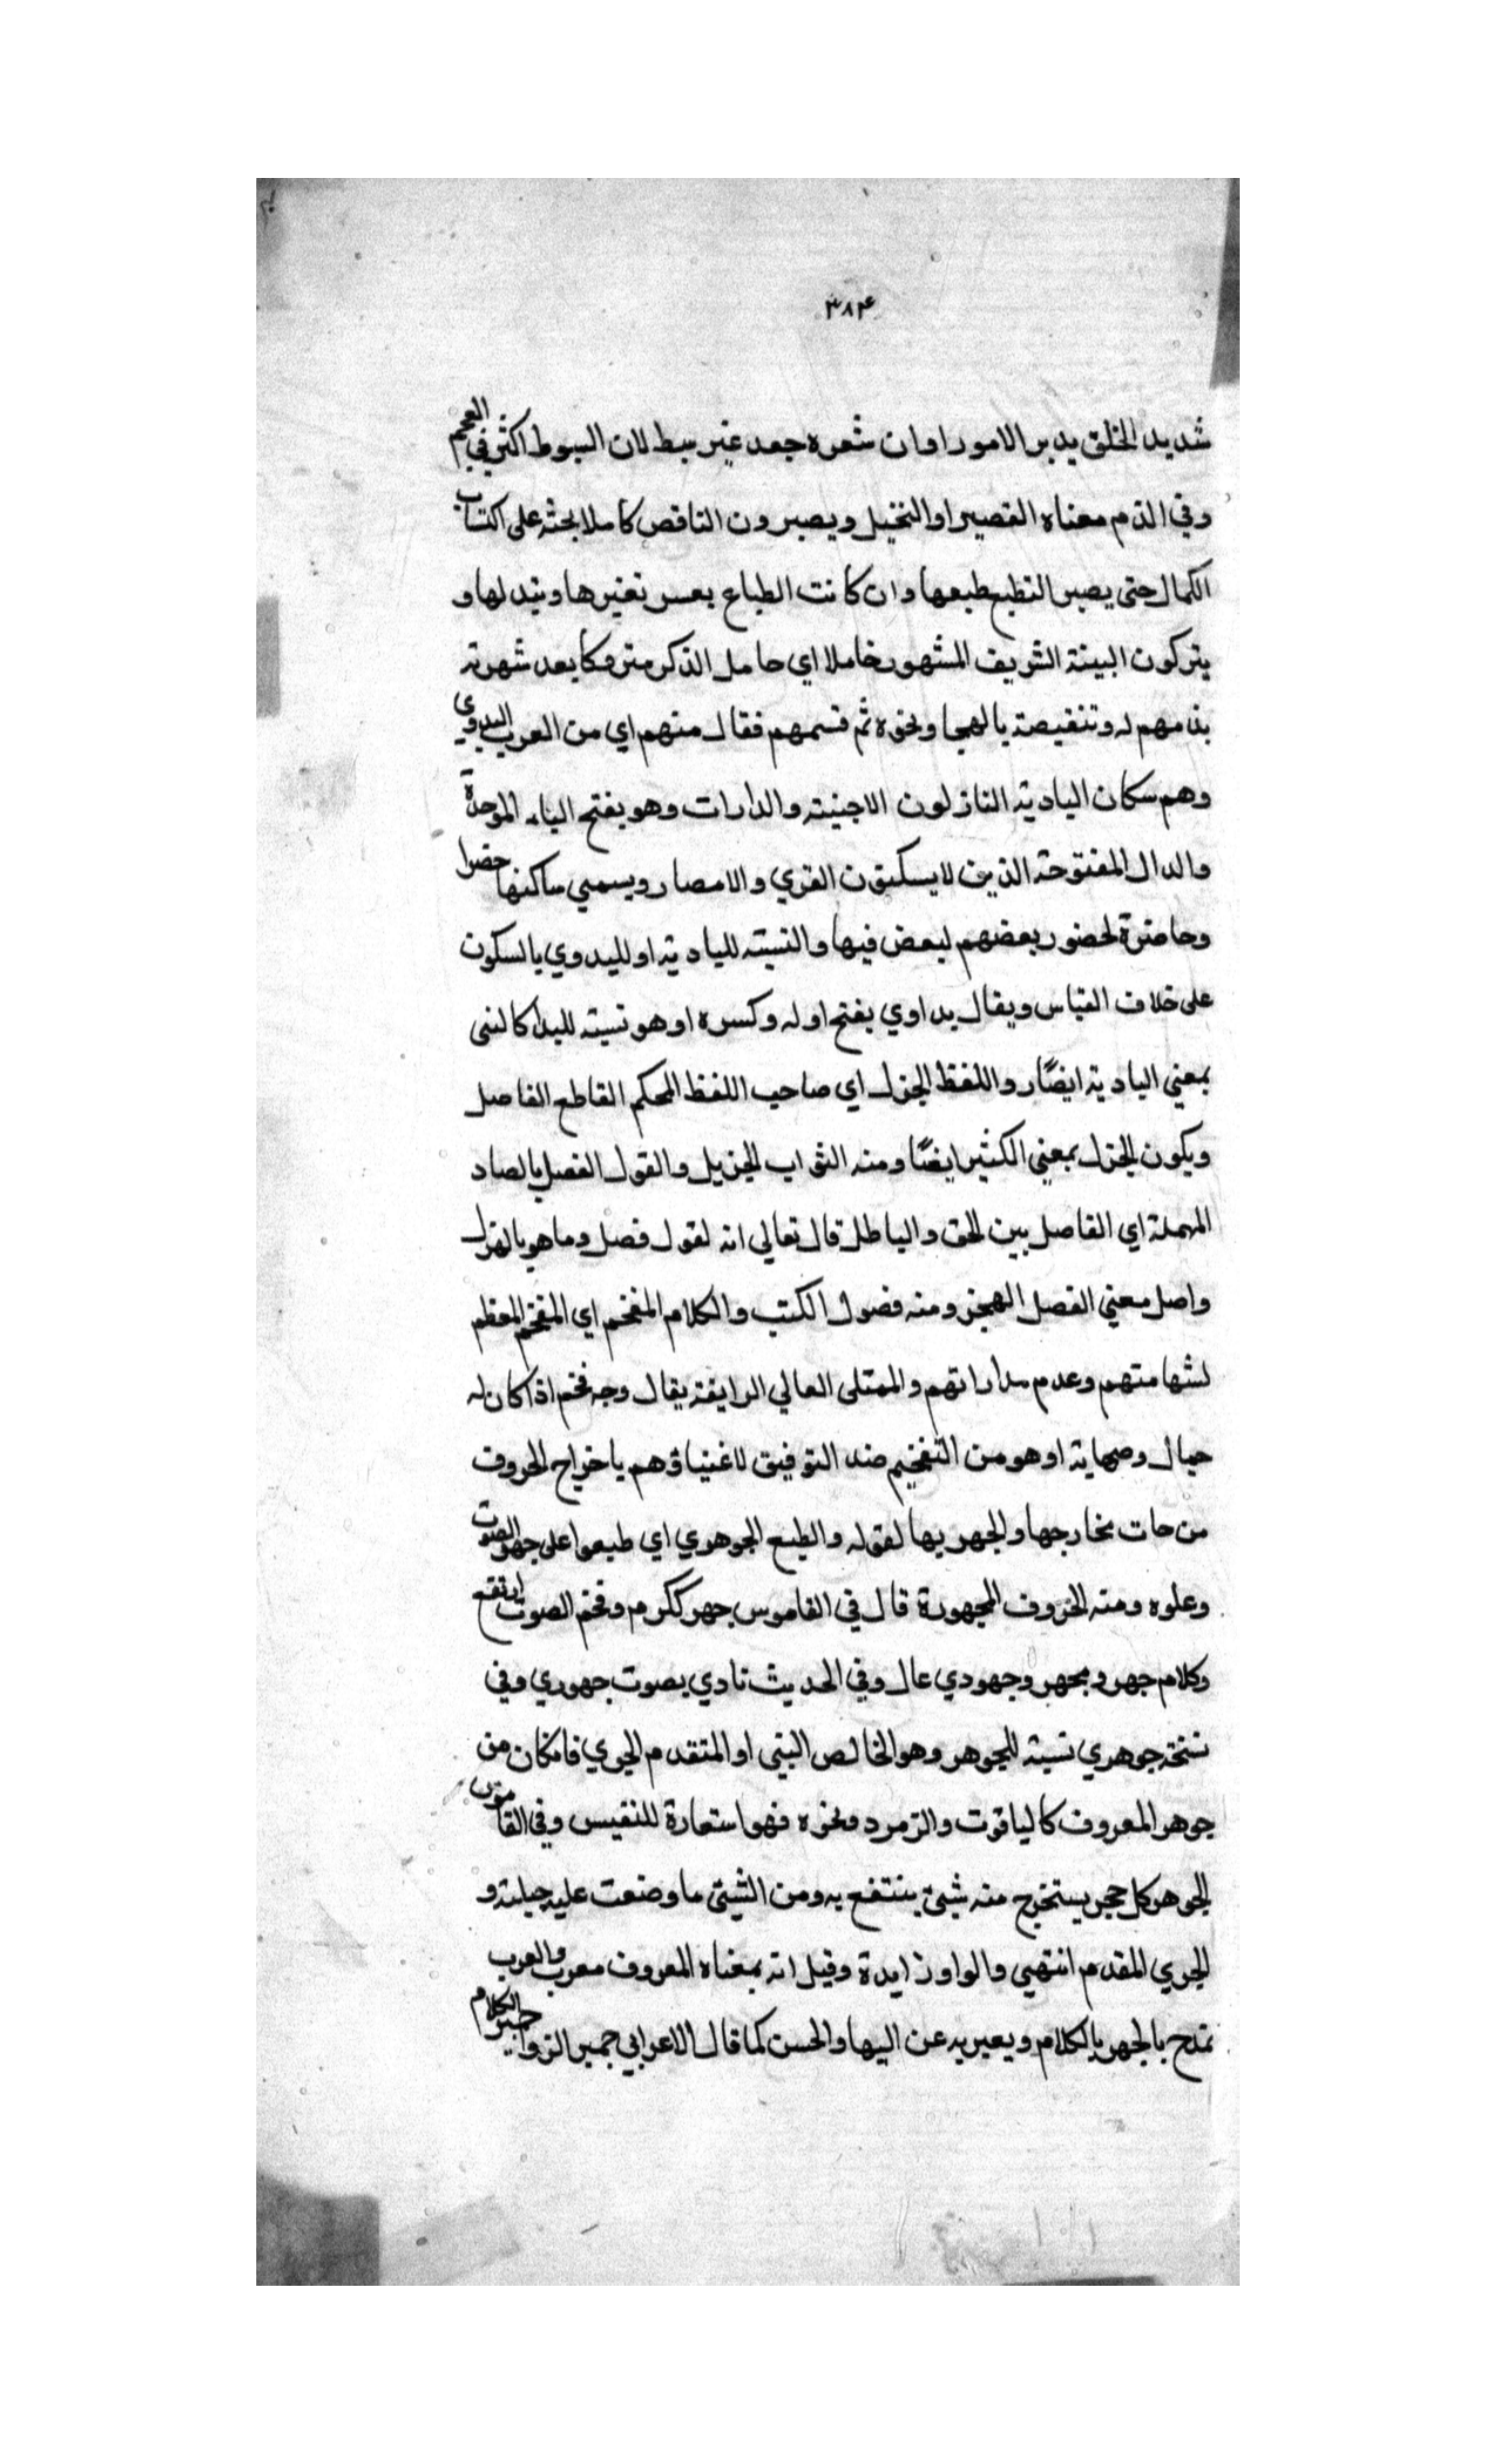 ٣٨٤
شديد الخلق يدبر الامور او ان شعره جعد غير سبط لان السبوط اكثر في العجم
وفي الذم معناه القصير او البخيل ويصيرون الناقص كاملا بحثه على اكتساب
الكمال حتى يصير التطبع طبعها وان كانت الطباع بعسر تغيرها وتبدلها و
يتركون البينة الشريف المشهور خاملا اي حامل الذكر متروكا بعد شهرته
بذمهم له وتنقيصة بالهجا ونحوه ثم قسمهم فقال منهم اي من العرب البدوي
وهم سكان البادية النازلون الاجنبته والدارات وهو بفتح الباء الموحدة
والدال المفتوحة الذين لا يسكنون القري والامصار ويسمي ساكنها حضرا
وحاضرة لحضور بعضهم لبعض فيها والنسبته للبادية او للبدوي بالسكون
على خلاف القياس ويقال بداوي بفتح اوله وكسره او هو نسبته للبدا كالنبى
بمعني البادية ايضًا و اللفظ الجزل اي صاحب اللفظ المحكم القاطع الفاصل
ويكون الجزل بمعني الكثير ايضًا ومنه الثواب الجزيل والقول الفصل بالصاد
المهملة اي الفاصل بين الحق والباطل قال تعالي انه لقول فصل وما هو بالهزل
واصل معني الفصل الهجز ومنه فصول الكتب والكلام المفخم اي المفخم المعظم
لشهامتهم وعدم مداراتهم والممتلى العالي الرايقة يقال وجه فخم اذا كان له
جمال ومهابة او هو من التفخيم ضد التوفيق لاغنياؤهم باخراج الحروف
من حات مخارجها والجهر بها لقوله والطبع الجوهري اي طبعوا على جهر الصوت
وعلوه ومنه الحروف المجهورة قال في القاموس جهر ككرم وفخم الصوت ارتفع
وكلام جهر ومجهر وجهودي عال وفي الحديث نادي بصوت جهوري وفي
نسخة جوهري نسبته للجوهر وهو الخالص البنى او المتقدم الجري فامكان من
جوهر المعروف كالياقوت والزمرد ونحوه فهو استعارة للنفيس وفي القاموس
الجوهر كل حجر يستخرج منه شيئ ينتفع به ومن الشيئ ما وضعت عليه جبلته و
الجري المقدم انتهي والواو زايدة وقيل انه بمعناه المعروف معرب والعرب
تمدح بالجهر بالكلام ويعبر به عن البها والحسن كما قال الاعرابي جهير الرواء جهير الكلام